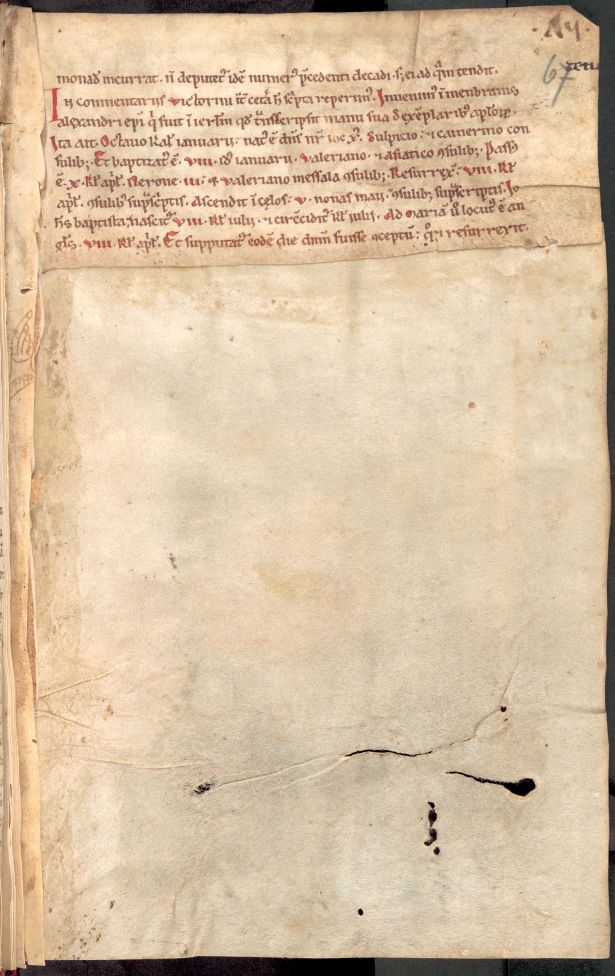 67
monad incurrat. n̄ deputet᷑ idē numer᷒ p̄cedenti decadi. s; ei ad q̄m tendit.
In commentariis victorini īt cet̄a h̄ sc̄pta reperim᷒. Inuenim᷒ ī membranis
alexandri epi q̄ fuit ī ierl̄m qd̄ t̄nsscripsit manu sua d exēplarib᷒ apl̄oꝝ.
Ita ait. Octauo kal̄ ianuarii. nat᷒ ē dn̄s nr̄ ioc xp̄. Sulpicio. ⁊ camerino con
sulib;. Et baptizat᷒ ē. viii. id᷒ ianuarii. valeriano. ⁊ asiatico ꝯsulib;. Pass᷒
ē. x. kl̄ apl̄. Nerone. iii. ⁊ valeriano messala ꝯsulib;. Resurrex̄. viii. kl̄
apl̄. ꝯsulib᷒ sup̄sc̄ptis. Ascendit ī cęlos. v. nonas maii. ꝯsulib; sup̄scriptis. Io
h̄s baptista nascit᷑ viii. kl̄ iulii. ⁊ circūcidit᷑ kl̄ iulii. Ad mariā ū locut᷒ ē an
gl̄s. viii. kl̄ apl̄. Et supputat᷑ eodē die dn̄m fuisse ꝯceptū. q̄ ⁊ resurrexit.